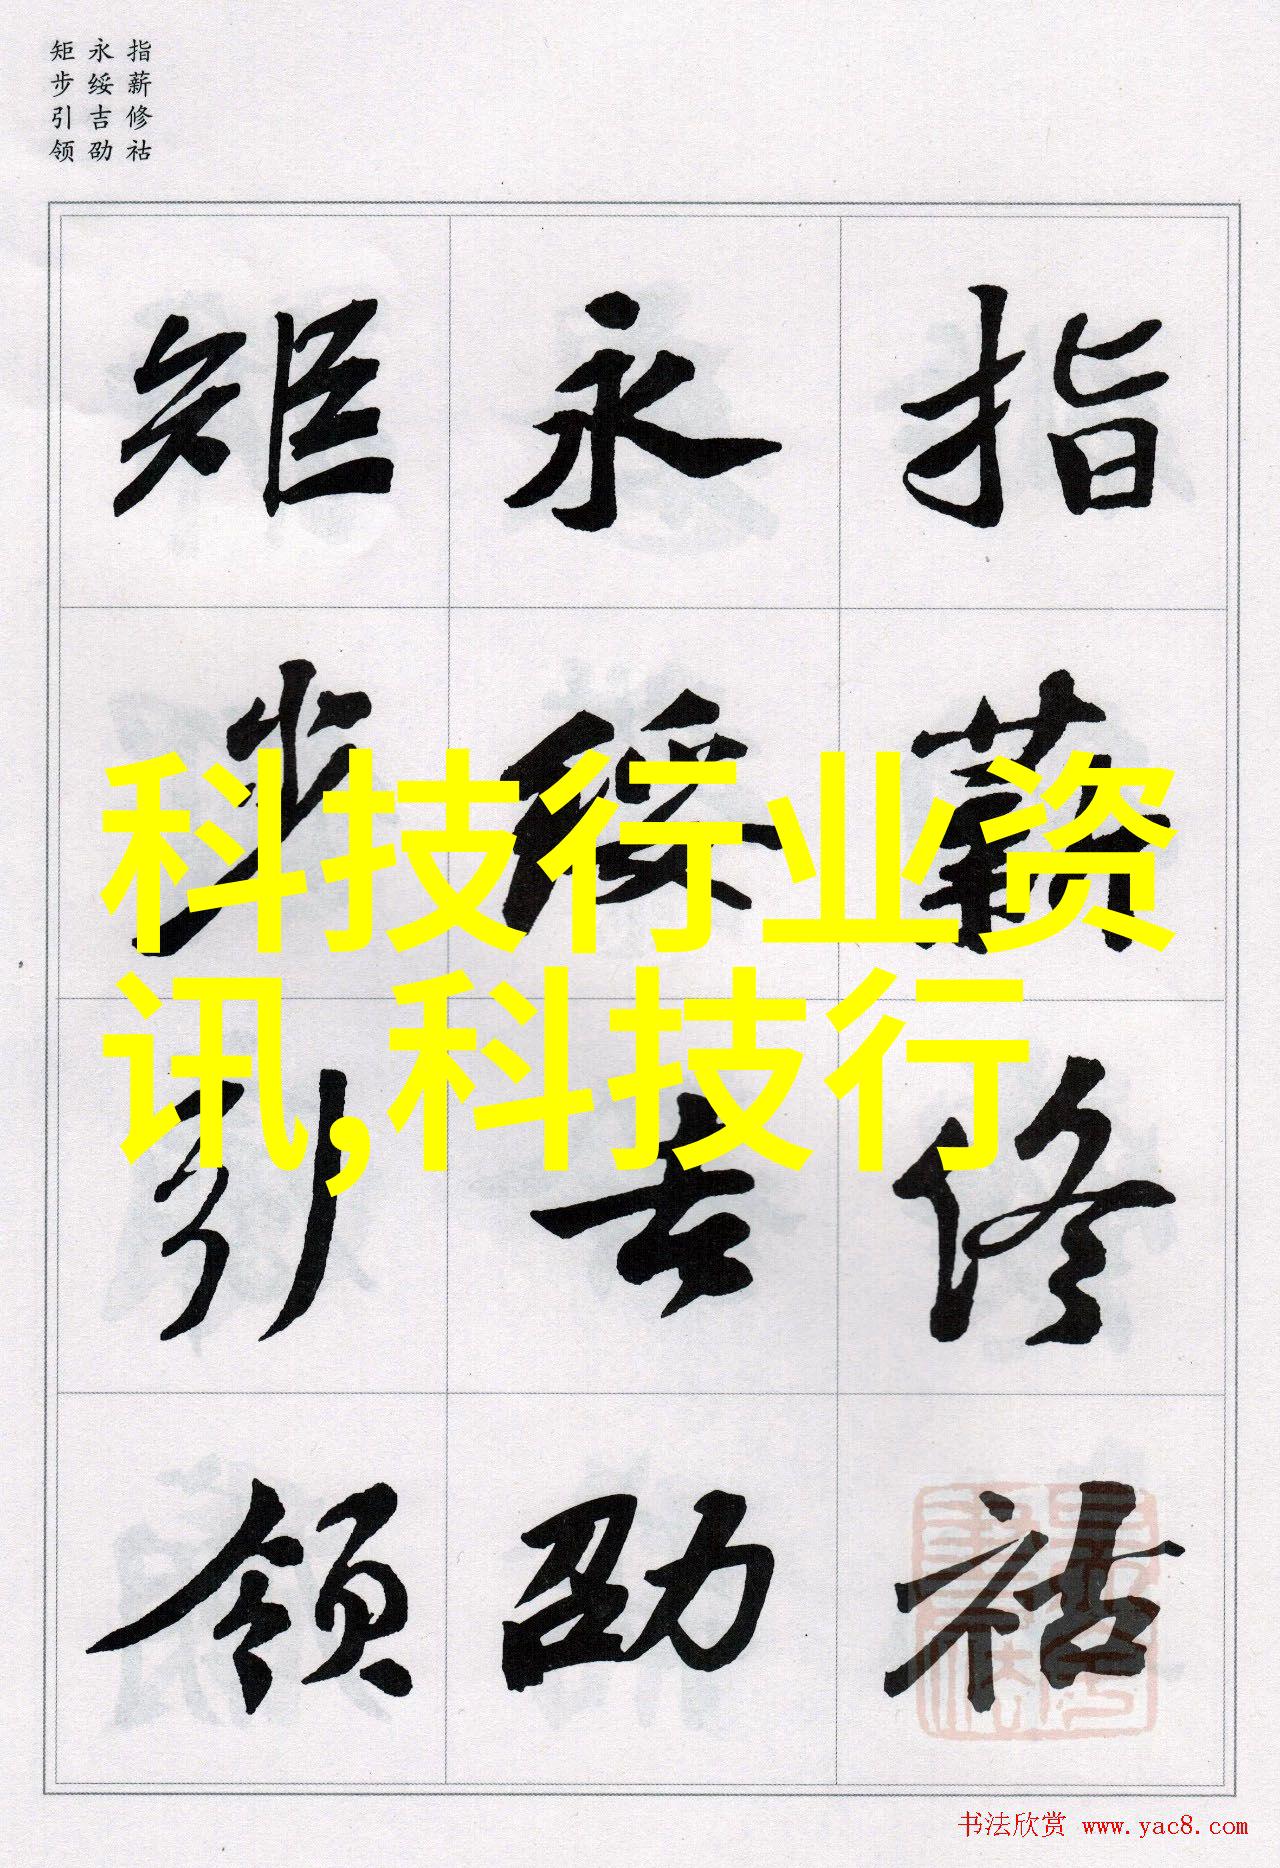 指薪修祜
永绥吉劭
矩步引领
指薪修祜
永绥吉劭
矩步引领
科技行业资
讯,科技行
书法欣赏 www.yac8.com